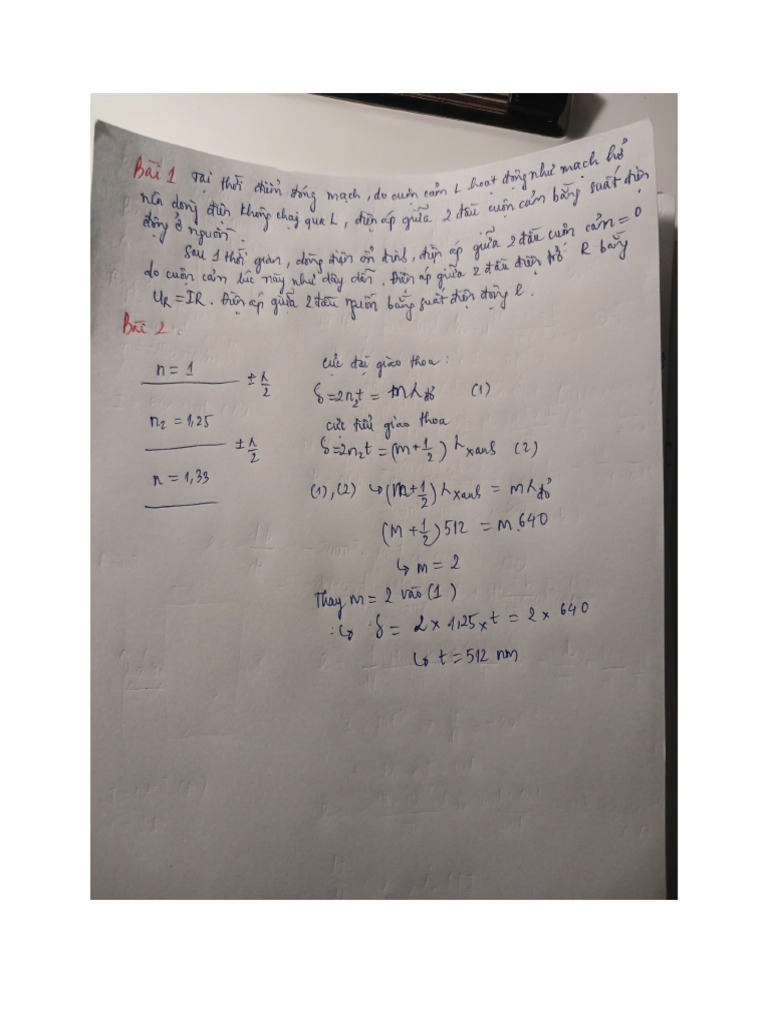 Bài 1 Tại thời điểm đóng mạch, do cuộn cảm L hoạt động như mạch hở
nên dòng điện không chạy qua L, điện áp giữa 2 đầu cuộn cảm bằng suất điện
động ở nguồn.
Sau 1 thời gian, dòng điện ổn định, điện áp giữa 2 đầu cuộn cảm = 0
do cuộn cảm lúc này như dây dẫn. Điện áp giữa 2 đầu điện trở R bằng
U_R = IR. Điện áp giữa 2 đầu nguồn bằng suất điện động ε.
Bài 2.
n = 1
± λ/2
n₂ = 1,25
± λ/2
n = 1,33
Cực đại giao thoa:
δ = 2n₂t = mλđỏ (1)
Cực tiểu giao thoa
δ = 2n₂t = (m + 1/2) λxanh (2)
(1), (2) ↪ (m + 1/2) λxanh = mλđỏ
(m + 1/2) 512 = m.640
↪ m = 2
Thay m = 2 vào (1)
: ↪ δ = 2 × 1,25 × t = 2 × 640
↪ t = 512 nm